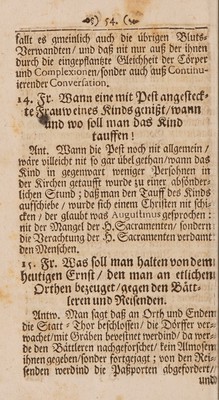 54.
fallt es gmeinlich auch die übrigen Bluts-
Verwandten / und daß nit nur auß der ihnen
durch die eingepflantzte Gleichheit der Cörper
und Complexionen / sonder auch auß Continu-
ierender Conversation.
14. Fr. Wann eine mit Pest angesteck-
te Frauw eines Kinds genißt / wann
und wo soll man das Kind
tauffen?
Ant. Wann die Pest noch nit allgemein /
wäre villeicht nit so gar übel gethan / wann das
Kind in gegenwart weniger Persohnen in
der Kirchen getaufft wurde zu einer absonder-
lichen Stund; daß man den Tauff des Kinds
auffschiebe / wurde sich einem Christen nit schi-
cken / der glaubt was Augustinus gesprochen:
nit der Mangel der H. Sacramenten / sondern
die Verachtung der H. Sacramenten verdamt
den Menschen.
15. Fr. Was soll man halten von dem
heutigen Ernst / den man an etlichen
Orthen bezeuget / gegen den Bätt-
leren und Reisenden.
Antw. Man sagt daß an Orth und Enden
die Statt-Thor beschlossen / die Dörffer ver-
wachet / mit Gräben bevestnet werdind / da wer-
de den Bättleren nachgeforschet / kein Almosen
ihnen gegeben / sonder fortgejagt; von den Rei-
senden werdind die Paßporten abgefordert /
und